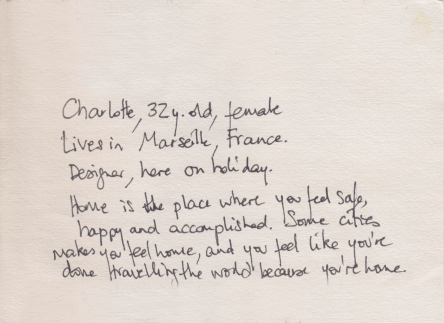 Charlotte, 32 y. old, female
Lives in Marseille, France.
Designer, here on holiday.
Home is the place where you feel safe,
happy and accomplished. Some cities
makes you feel home, and you feel like you're
done travelling the world because you're home.